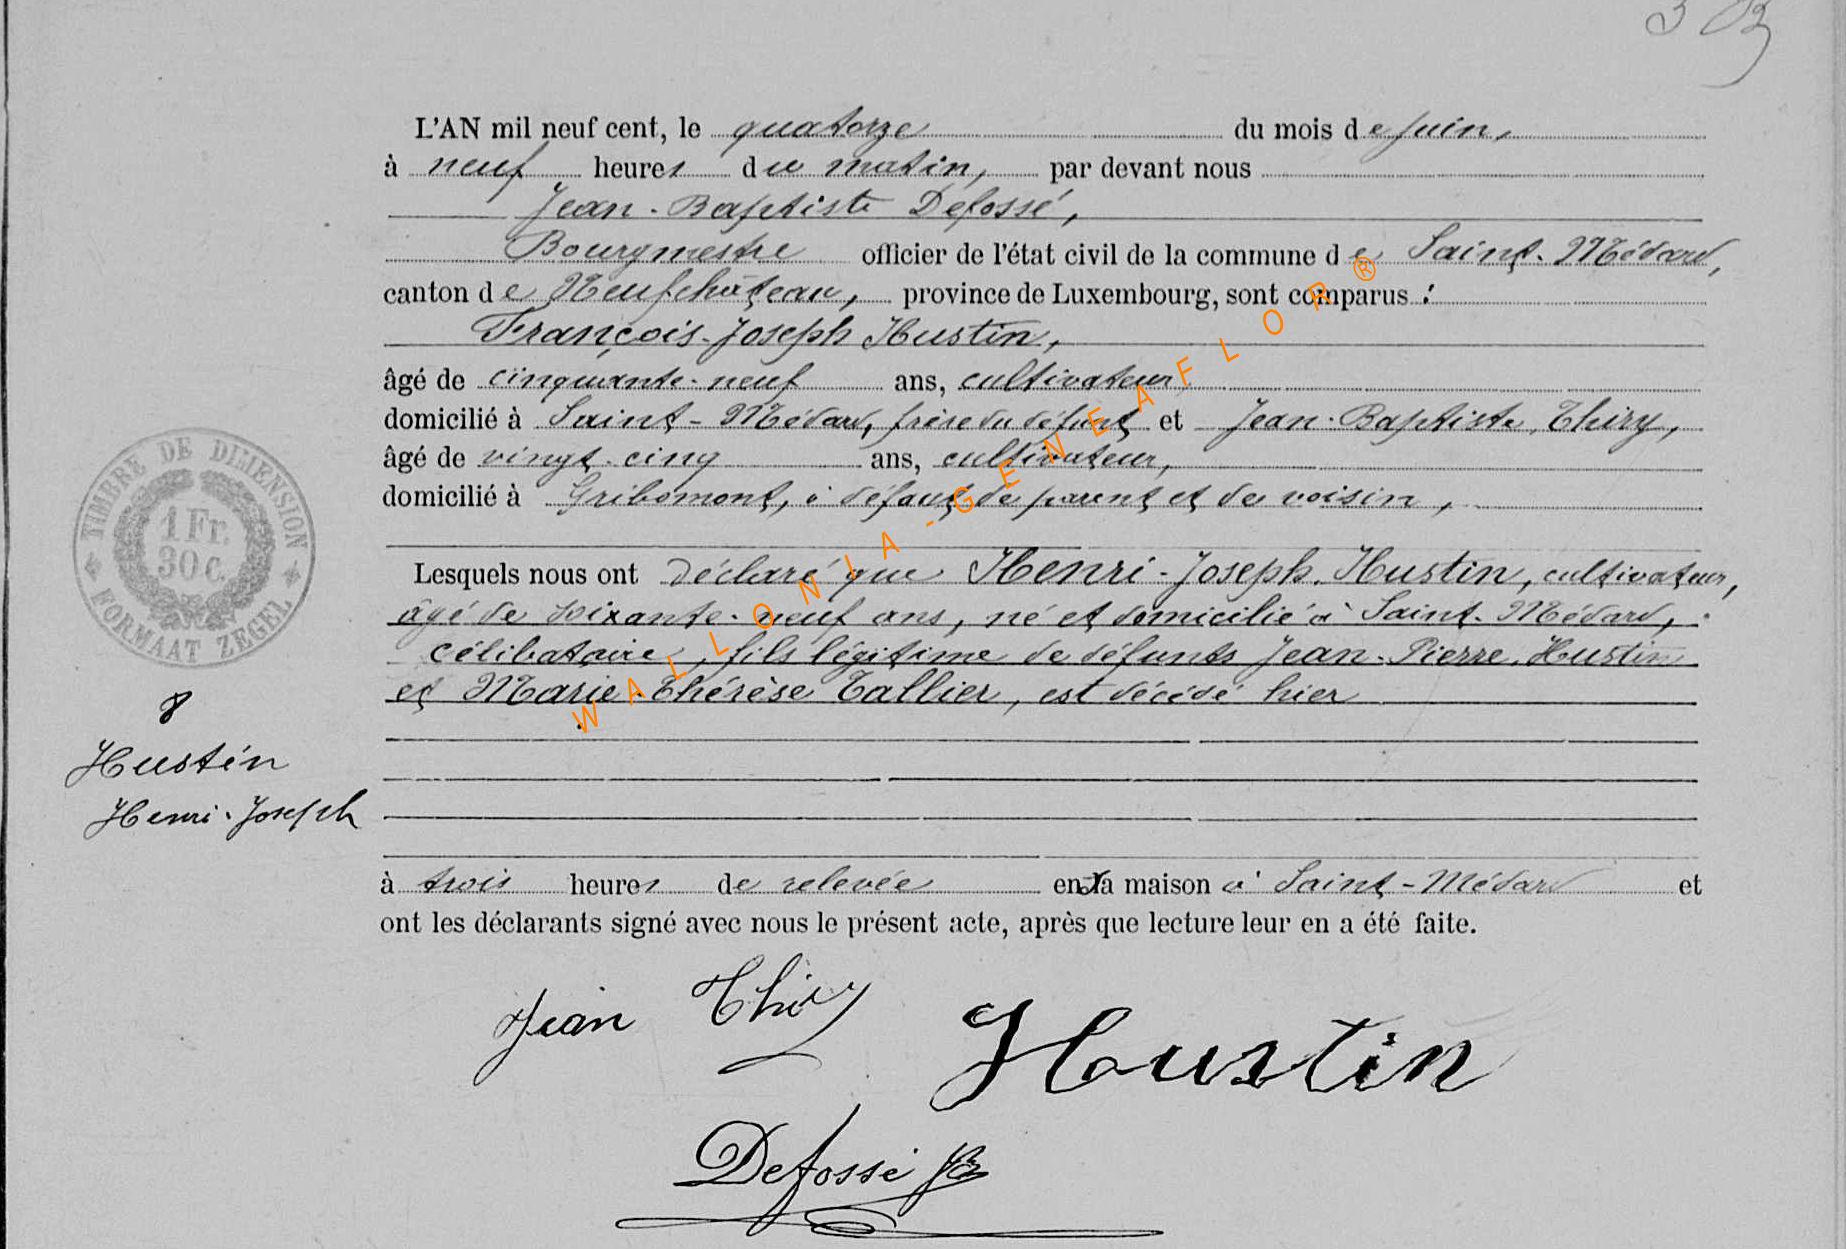 303
L'AN mil neuf cent, le quatorze du mois de juin,
à neuf heures du matin, par devant nous
Jean-Baptiste Defossé,
Bourgmestre officier de l'état civil de la commune de Saint-Médard,
canton de Neufchâteau, province de Luxembourg, sont comparus :
François-Joseph Hustin,
âgé de cinquante-neuf ans, cultivateur,
domicilié à Saint-Médard, frère du défunt et Jean-Baptiste Thiry,
âgé de vingt-cinq ans, cultivateur,
domicilié à Gribomont, à défaut de parent et de voisin,
Lesquels nous ont déclaré que Henri-Joseph Hustin, cultivateur,
âgé de soixante-neuf ans, né et domicilié à Saint-Médard,
célibataire, fils légitime de défunts Jean-Pierre Hustin
et Marie-Thérèse Tallier, est décédé hier
à trois heures de relevée en sa maison à Saint-Médard et
ont les déclarants signé avec nous le présent acte, après que lecture leur en a été faite.
TIMBRE DE DIMENSION
1 Fr.
30 c.
FORMAAT ZEGEL
8
Hustin
Henri-Joseph
Jean Thiry
Hustin
Defossé JB
WALLONIA-GENEAFLOR®